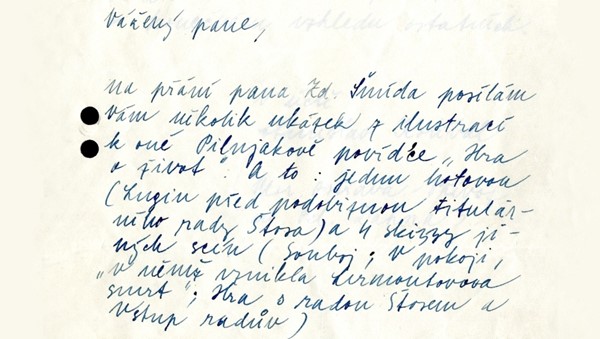 Vážený pane,
na přání pana Zd. Šmída posílám
Vám několik ukázek z ilustrací
k oné Pilnjakově povídce „Hra
o život“. A to: jednu hotovou
(Lugin před podobiznou titulár-
ního rady Štosa) a 4 skizzy ji-
ných scén (Souboj; V pokoji,
„v němž vznikla Lermontovova
smrt“; Hra o radou Štosem a
Vstup radův)